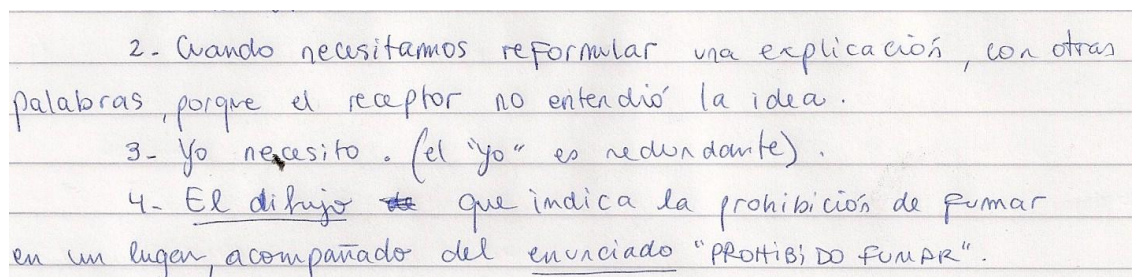 2- Cuando necesitamos reformular una explicación, con otras
palabras, porque el receptor no entendió la idea.
3- Yo necesito. (el "yo" es redundante).
4- El dibujo que indica la prohibición de fumar
en un lugar, acompañado del enunciado "PROHIBIDO FUMAR".